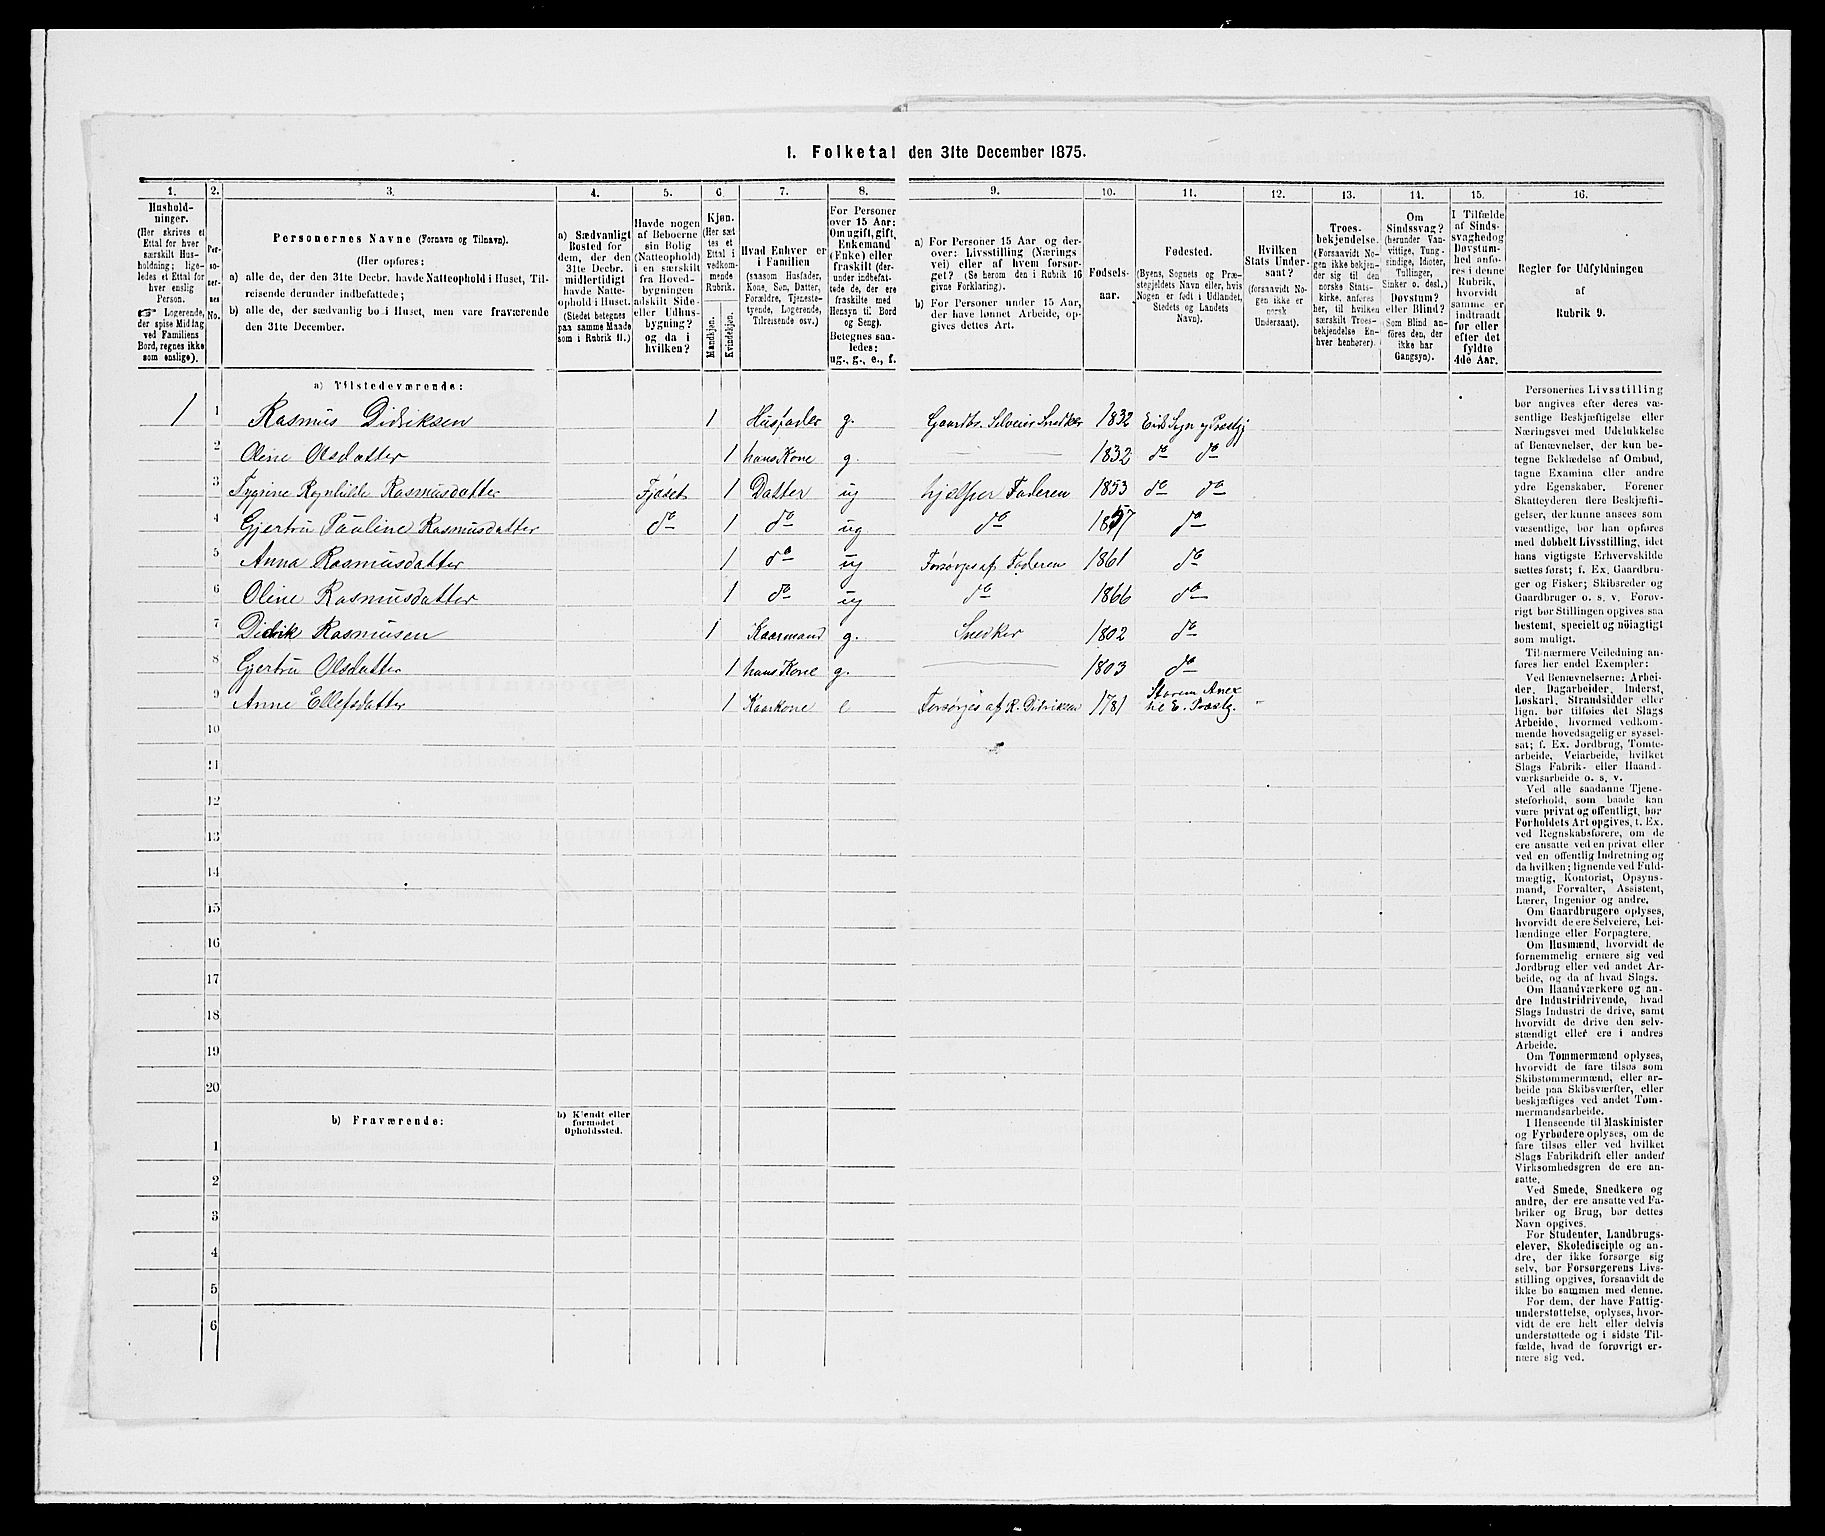 1. Folketal den 31te December 1875.
1. 2. 3. 4. 5. 6. 7. 8. 9. 10. 11. 12. 13. 14. 15. 16.
Hushold-
ninger.
(Her skrives et
Ettal for hver
særskilt Hus-
holdning; lige-
ledes et Ettal for
hver enslig
Person.
☞ Logerende,
der spise Middag
ved Familiens
Bord, regnes ikke
som enslige).
Per-
so-
ner-
nes
No.
Personernes Navne (Fornavn og Tilnavn).
(Her opføres:
a) alle de, der den 31te Decbr. havde Natteophold i Huset, Til-
reisende derunder indbefattede;
b) alle de, der sædvanlig bo i Huset, men vare fraværende
den 31te December.
a) Sædvanligt
Bosted for
dem, der den
31te Decbr.
midlertidigt
havde Natte-
ophold i Huset.
(Stedet betegnes
paa samme Maade
som i Rubrik 11.)
Havde nogen
af Beboerne
sin Bolig
(Natteophold)
i en særskilt
fra Hoved-
bygningen
adskilt Side-
eller Udhus-
bygning?
og da i
hvilken?
Kjøn.
(Her sæt
tes et
Ettal i
vedkom-
mende
Rubrik.
Mandkjøn.
Kvindekjøn.
Hvad Enhver er
i Familien
(saasom Husfader,
Kone, Søn, Datter,
Forældre, Tjeneste-
tyende, Logerende,
Tilreisende osv.)
For Personer
over 15 Aar:
Om ugift, gift,
Enkemand
(Enke) eller
fraskilt (der-
under indbefat-
tede de, der ere
fraskilte med
Hensyn til Bord
og Seng).
Betegnes saa-
ledes:
ug., g., e., f.
a) For Personer 15 Aar og der-
over: Livsstilling (Nærings
vei) eller af hvem forsør-
get? (Se herom den i Rubrik 16
givne Forklaring).
b) For Personer under 15 Aar,
der have lønnet Arbeide, op-
gives dettes Art.
Fødsels-
aar.
Fødested.
(Byens, Sognets og Præ-
stegjeldets Navn eller, hvis
Nogen er født i Udlandet,
Stedets og Landets
Navn).
Hvilken
Stats Under-
saat?
(forsaavidt No-
gen ikke er
norsk
Undersaat).
Troes-
bekjendelse.
(Forsaavidt No-
gen ikke bekjen-
der sig til den
norske Stats-
kirke, anføres
her, til hvilken
særskilt Troes-
bekjendelse En-
hver henhører).
Om
Sindssvag?
(herunder Van-
vittige, Tung-
sindige, Idioter,
Tullinger,
Sinker o. desl.)
Døvstum?
eller Blind?
(Som Blind an-
føres den, der
ikke har
Gangsyn).
I Tilfælde
af Sinds-
svaghed og
Døvstum-
hed anfø-
res i denne
Rubrik,
hvorvidt
samme er
indtraadt
før eller
efter det
fyldte
4de Aar.
Regler for Udfyldningen
af
Rubrik 9.
a) Tilstedeværende:
1 1 Rasmus Didriksen 1 Husfader g. Gaardbr. Selveier Snedker 1832 Eid Sogn og Præstgj
2 Oline Olsdatter 1 hans Kone g. 1832 do do
3 Rognhilde Rasmusdatter Fjøset 1 Datter ug hjelper Faderen 1853 do do
4 Gjertru Pauline Rasmusdatter do 1 do ug do 1857 do
5 Anna Rasmusdatter 1 do ug Forsørges af Faderen 1861 do
6 Oline Rasmusdatter 1 do ug do 1866 do
7 Didrik Rasmusen 1 Kaarmand g. Snedker 1802 do
8 Gjertru Olsdatter 1 hans Kone g. 1803 do
9 Anne Ellefsdatter 1 Kaarkone e Forsørges af R. Didriksen 1781 Anex
til E. Præstg.
10
11
12
13
14
15
16
17
18
19
20
b) Fraværende:
b) Kjendt eller
formodet
Opholdssted.
1
2
3
4
5
6
Personernes Livsstilling
bør angives efter deres væ-
sentlige Beskjæftigelse eller
Næringsvei med Udelukkelse
af Benævnelser, der kun be-
tegne Beklædelse af Ombud,
tagne Examina eller andre
ydre Egenskaber. Forener
Skatteyderen flere Beskjæfti-
gelser, der kunne ansees som
væsentlige, bør han opføres
med dobbelt Livsstilling, idet
hans vigtigste Erhvervskilde
sættes først; f. Ex. Gaardbru-
ger og Fisker; Skibsreder og
Gaardbruger o. s. v. Forøv-
rigt bør Stillingen opgives saa
bestemt, specielt og nöiagtigt
som muligt.
Til nærmere Veiledning an-
føres her endel Exempler:
Ved Benævnelserne: Arbei-
der, Dagarbeider, Inderst,
Løskarl, Strandsidder eller
lign. bør tilføies det Slags
Arbeide, hvormed vedkom-
mende hovedsagelig er syssel-
sat; f. Ex. Jordbrug, Tomte-
arbeide, Veiarbeide, hvilket
Slags Fabrik- eller Haand-
værksarbeide o. s. v.
Ved alle saadanne Tjene-
steforhold, som baade kan
være privat og offentligt, bør
Forholdets Art opgives, t. Ex.
ved Regnskabsførere, om de
ere ansatte ved en privat eller
ved en offentlig Indretning og
da hvilken; lignende ved Fuld-
mægtig, Kontorist, Opsyns-
mand, Forvalter, Assistent,
Lærer, Ingeniør og andre.
Om Gaardbrugere oplyses,
hvorvidt de ere Selveiere, Lei-
lændinge eller Forpagtere.
Om Husmænd, hvorvidt de
fornemmelig ernære sig ved
Jordbrug eller ved andet Ar-
beide, og da af hvad Slags.
Om Haandværkere og an-
dre Industridrivende, hvad
Slags Industri de drive, samt
hvorvidt de drive den selv-
stændigt eller ere i andres
Arbeide.
Om Tømmermænd oplyses,
hvorvidt de fare tilsøs som
Skibstømmermænd, eller ar-
beide paa Skibsværfter, eller
beskjæftiges ved andet Tøm-
mermandsarbeide.
I Henseende til Maskinister
og Fyrbødere oplyses, om de
fare tilsøs eller ved hvilket
Slags Fabrikdrift eller anden
Virksomhedsgren de ere an-
satte.
Ved Smede, Snedkere og
andre, der ere ansatte ved Fa-
briker og Brug, bør dettes
Navn opgives.
For Studenter, Landbrugs-
elever, Skoledisciple og an-
dre, der ikke forsørge sig
selv, bør Forsørgerens Livs-
stilling opgives, forsaavidt de
ikke bo sammen med denne.
For dem, der have Fattig-
understøttelse, oplyses, hvor-
vidt de ere helt eller delvis
understøttede og i sidste Til-
fælde, hvad de forøvrigt er-
nære sig ved.